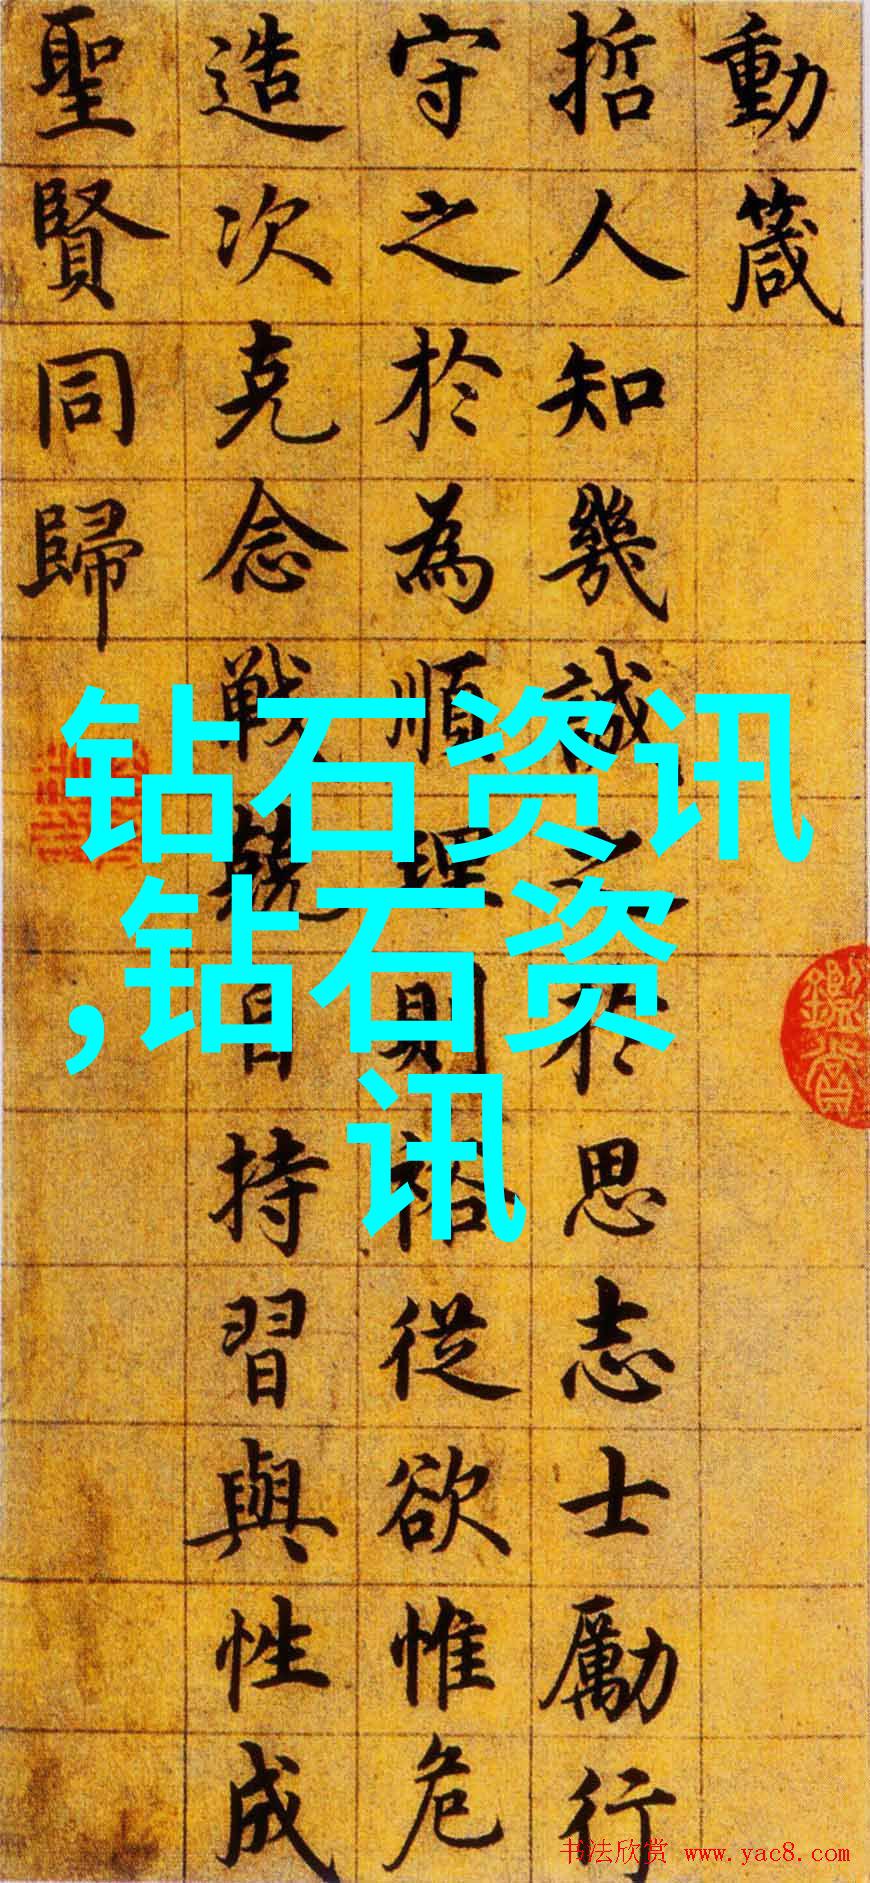 動箴
哲人知幾誠之於思志士勵行
守之於為順理則裕從欲惟危
造次克念戰兢自持習與性成
聖賢同歸
钻石资讯
,钻石资
讯
书法欣赏 www.yac8.com